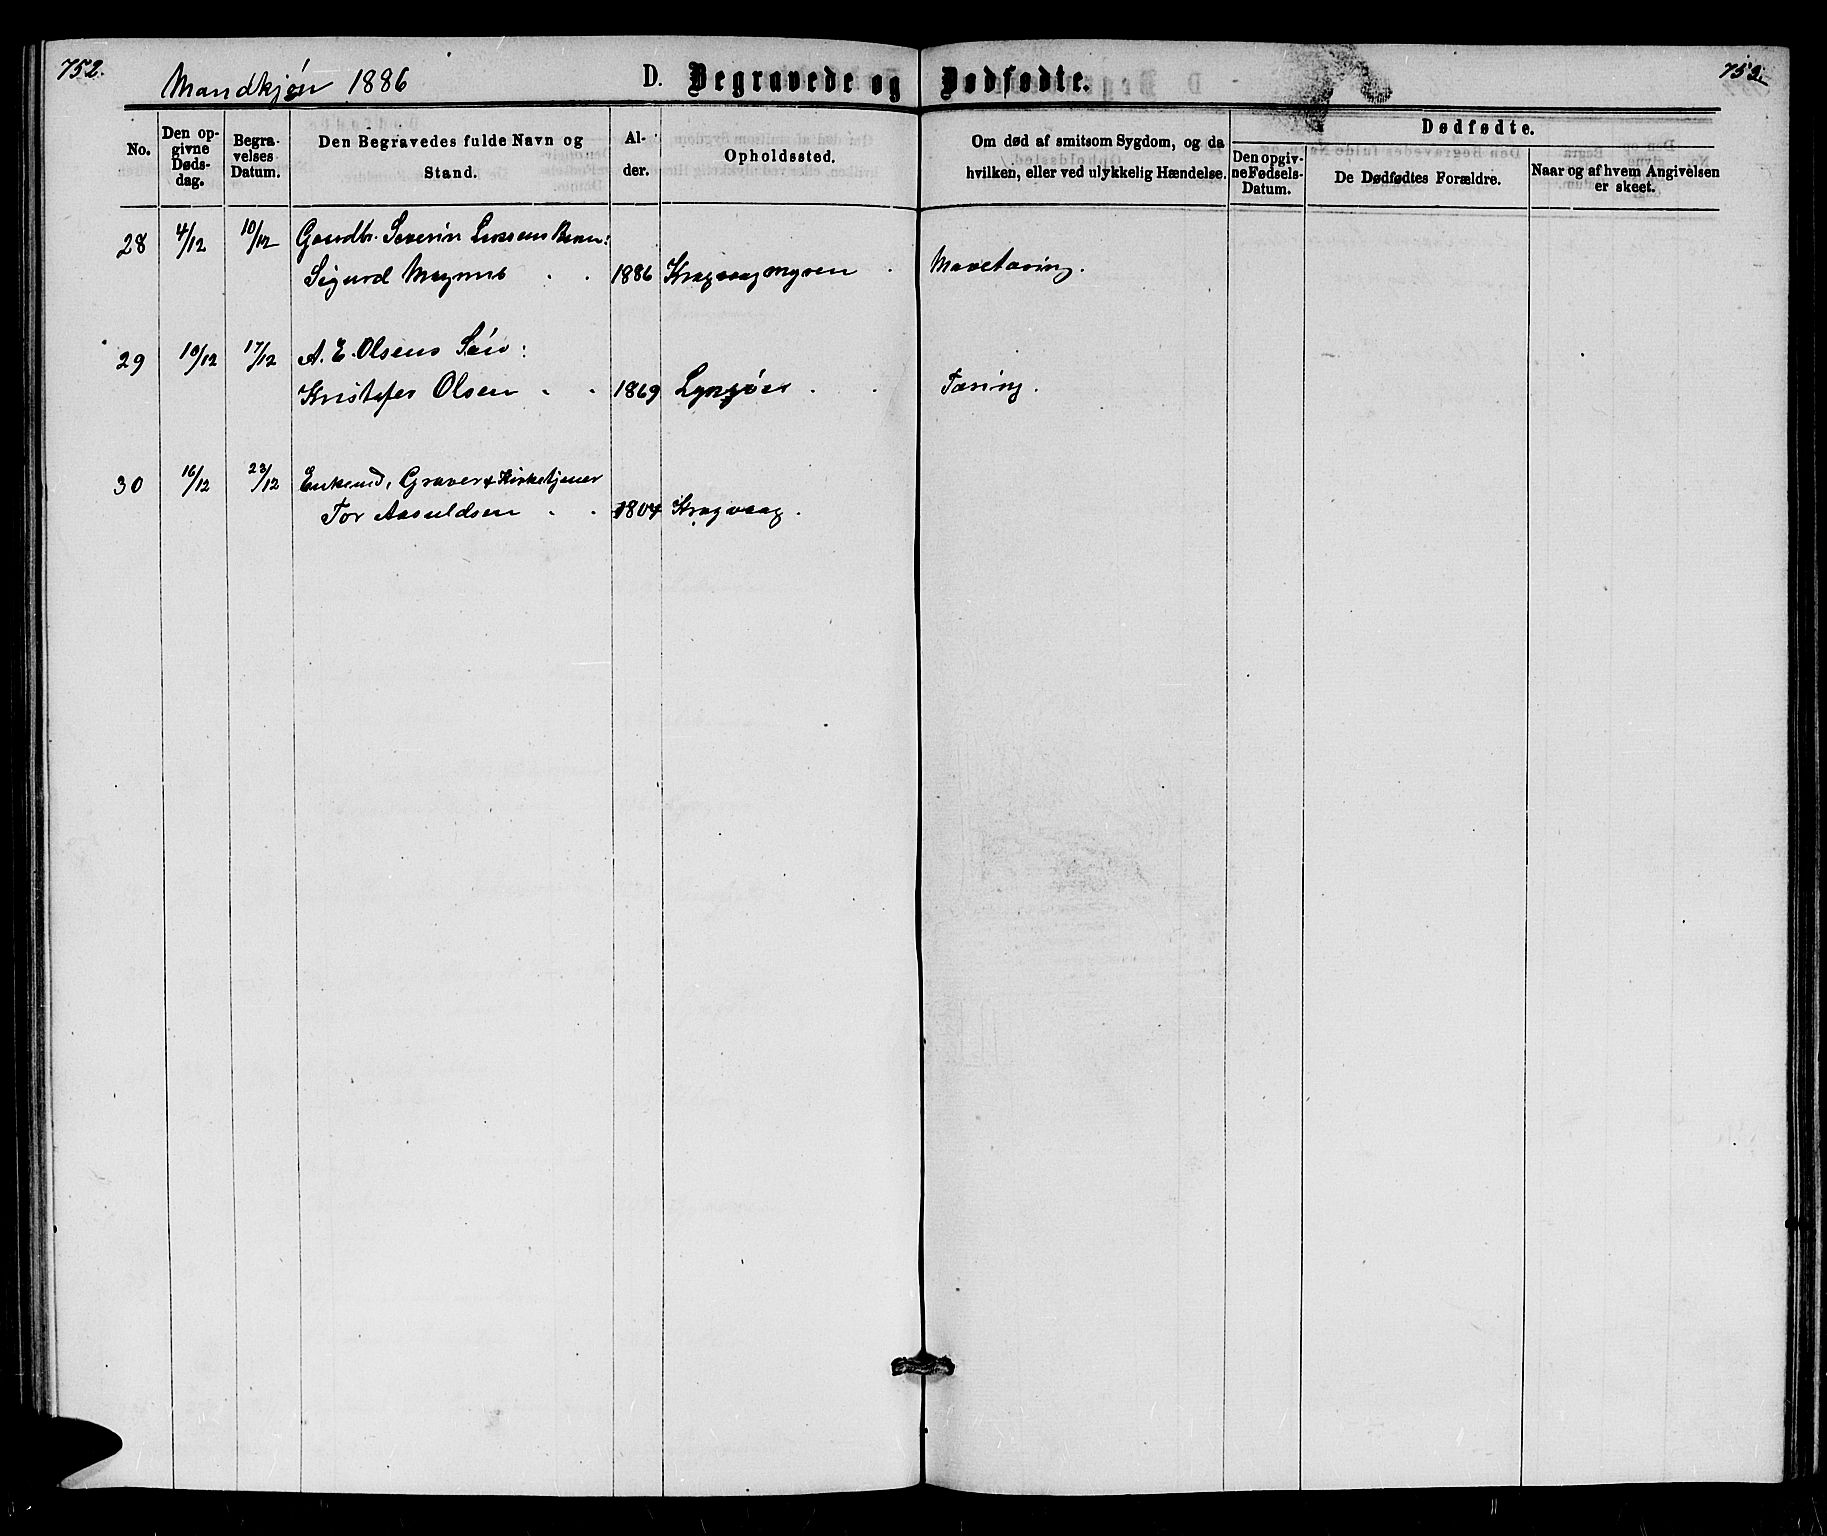 752.
Mandkjøn 1886
D. Begravede og Dødfødte.
752
No.
Den opgivne Dødsdag.
Begravelses Datum.
Den Begravedes fulde Navn og Stand.
Alder.
Opholdssted.
Om død af smitsom Sygdom, og da hvilken, eller ved ulykkelig Hændelse.
Dødfødte.
Den opgivne Fødsels-Datum.
De Dødfødtes Forældre.
Naar og af hvem Angivelsen er skeet.
28 4/12 10/12 Gaardbr. Severin Barn:
Sigurd Magnus 1886 Kragvaagmyren Mavetæring.
29 10/12 17/12 A. E. Olsens Søn:
Kristofer Olsen 1869 Lyngøer Tæring.
30 16/12 23/12 Enkemd, Graver & Kirketjener
Tor Aasuldsen 1804 Kragvaag.